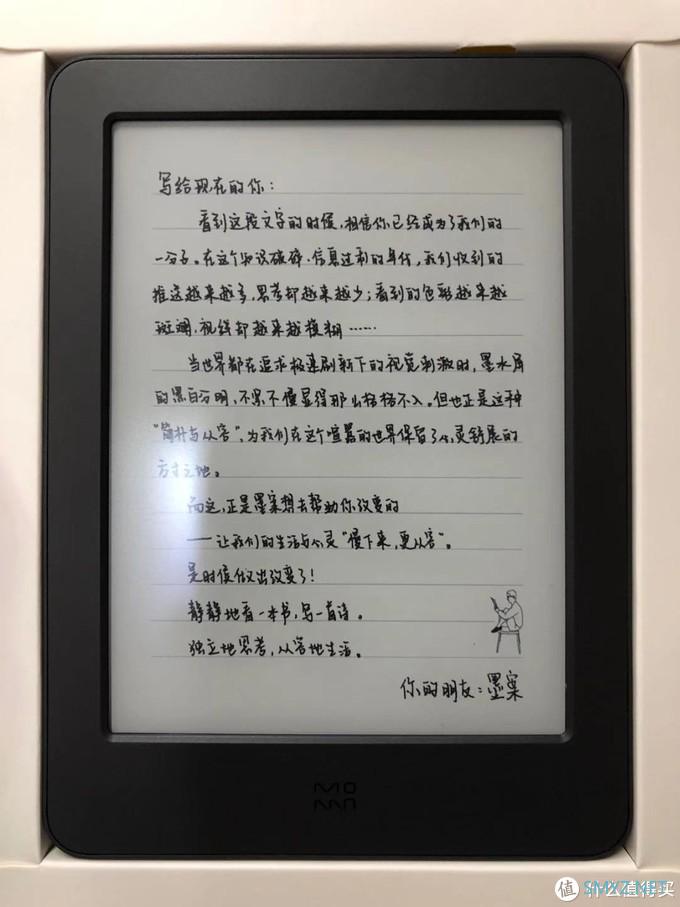 写给现在的你：
看到这段文字的时候，相信你已经成为了我们的
一分子。在这个知识破碎、信息过剩的年代，我们收到的
推送越来越多，思考却越来越少；看到的色彩越来越
斑斓，视线却越来越模糊……
当世界都在追求极速刷新下的视觉刺激时，墨水屏
的黑白分明，不紧不慢显得那么格格不入。但也正是这种
“简朴与从容”，为我们在这个喧嚣的世界保留了心灵舒展的
方寸之地。
而这，正是墨案想去帮助你改变的
——让我们的生活与心灵“慢下来，更从容”。
是时候做出改变了！
静静地看一本书，写一首诗。
独立地思考，从容地生活。
你的朋友：墨案
MO
AN
值 什么值得买
SMYZ.NET